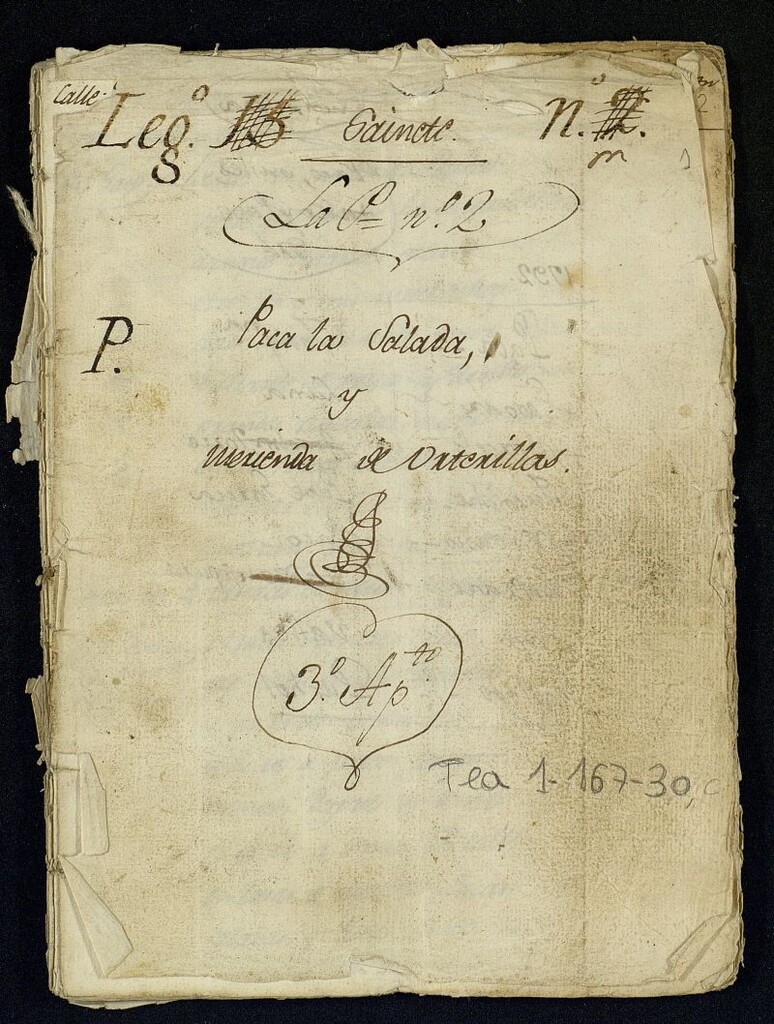 Calle
Leg.º Sainete. N.º
8 m
La P.ª n.º 2
P. Paca la Salada,
y
merienda de Orterillas.
3.º Ap.to
Tea 1-167-30, c